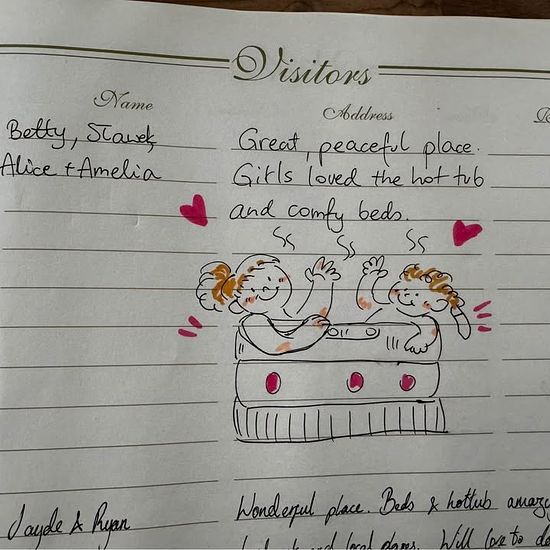 Visitors
Name
Address
Betty, Sławek
Alice + Amelia
Great, peaceful place.
Girls loved the hot tub
and comfy beds.
Jayde & Ryan
Wonderful place. Beds & hottub amazy
and local Will love to